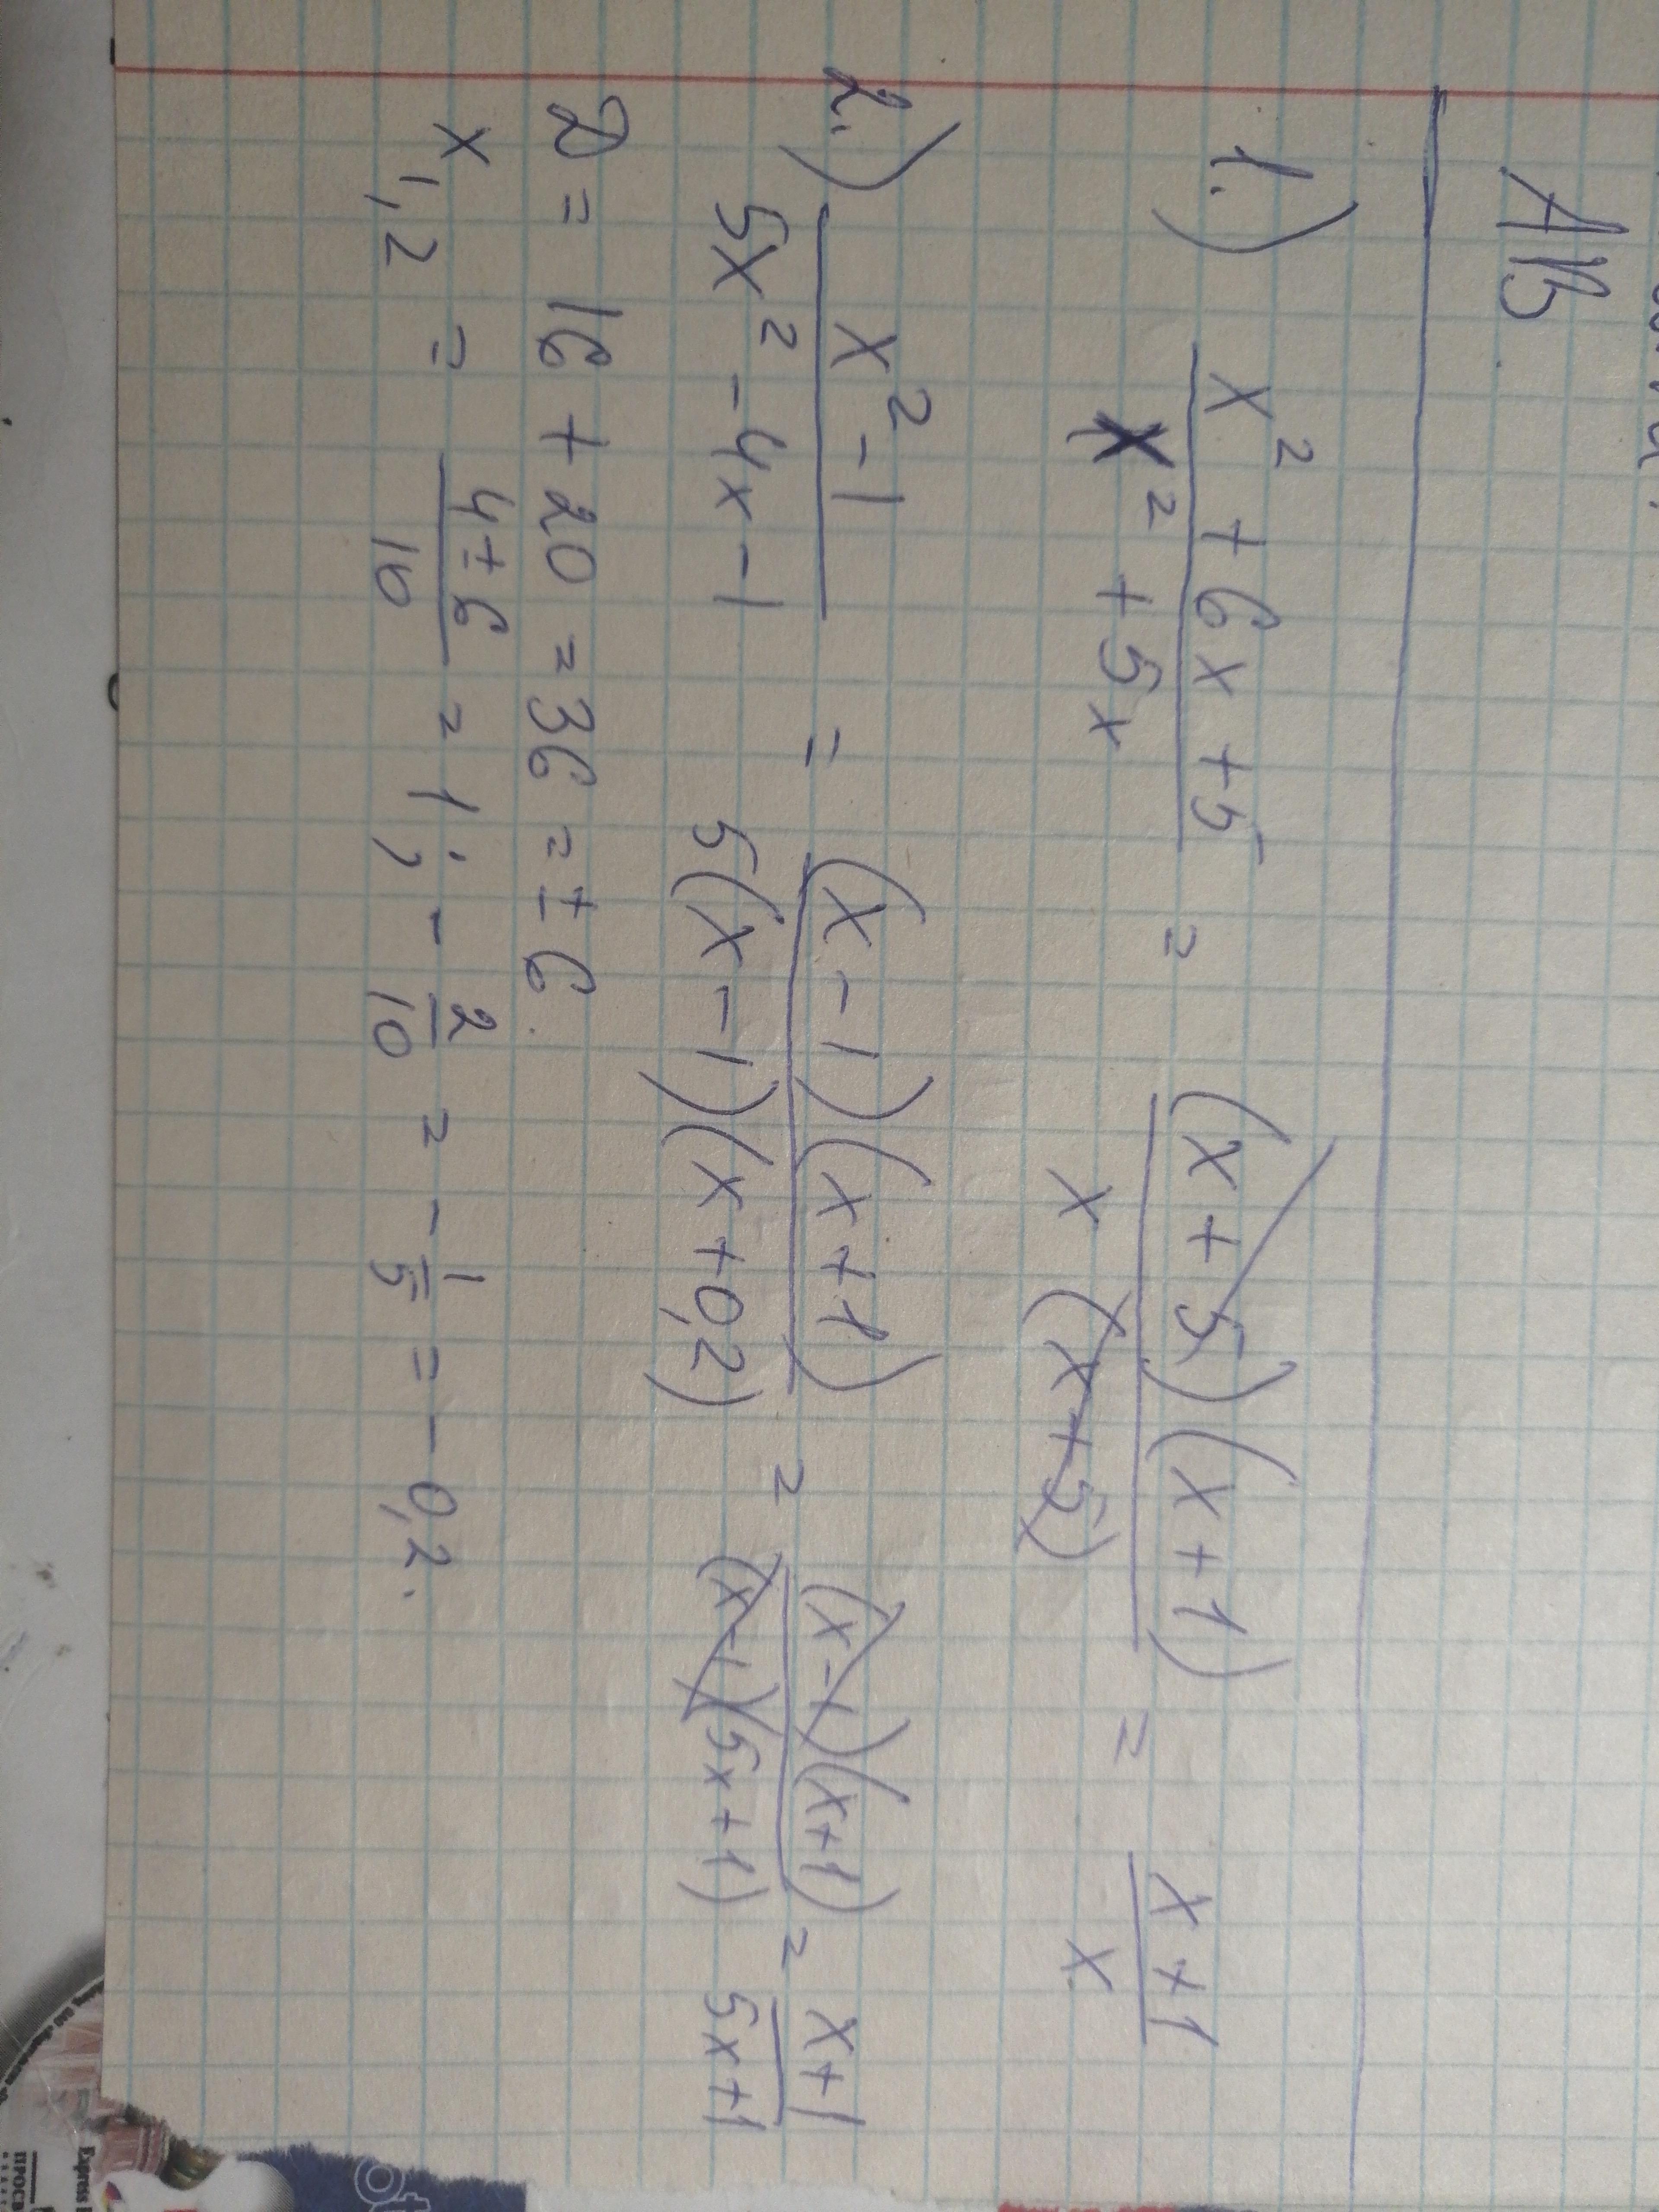 АВ.
1.) (x² + 6x + 5)/(x² + 5x) = ((x + 5)(x + 1))/(x (x + 5)) = (x + 1)/x
2.) (x² - 1)/(5x² - 4x - 1) = ((x - 1)(x + 1))/(5(x - 1)(x + 0,2)) = ((x - 1)(x + 1))/((x - 1)(5x + 1)) = (x + 1)/(5x + 1)
D = 16 + 20 = 36 = ± 6.
x1,2 = (4 ± 6)/10 = 1; - 2/10 = - 1/5 = - 0,2.
Express
ПРОСВ